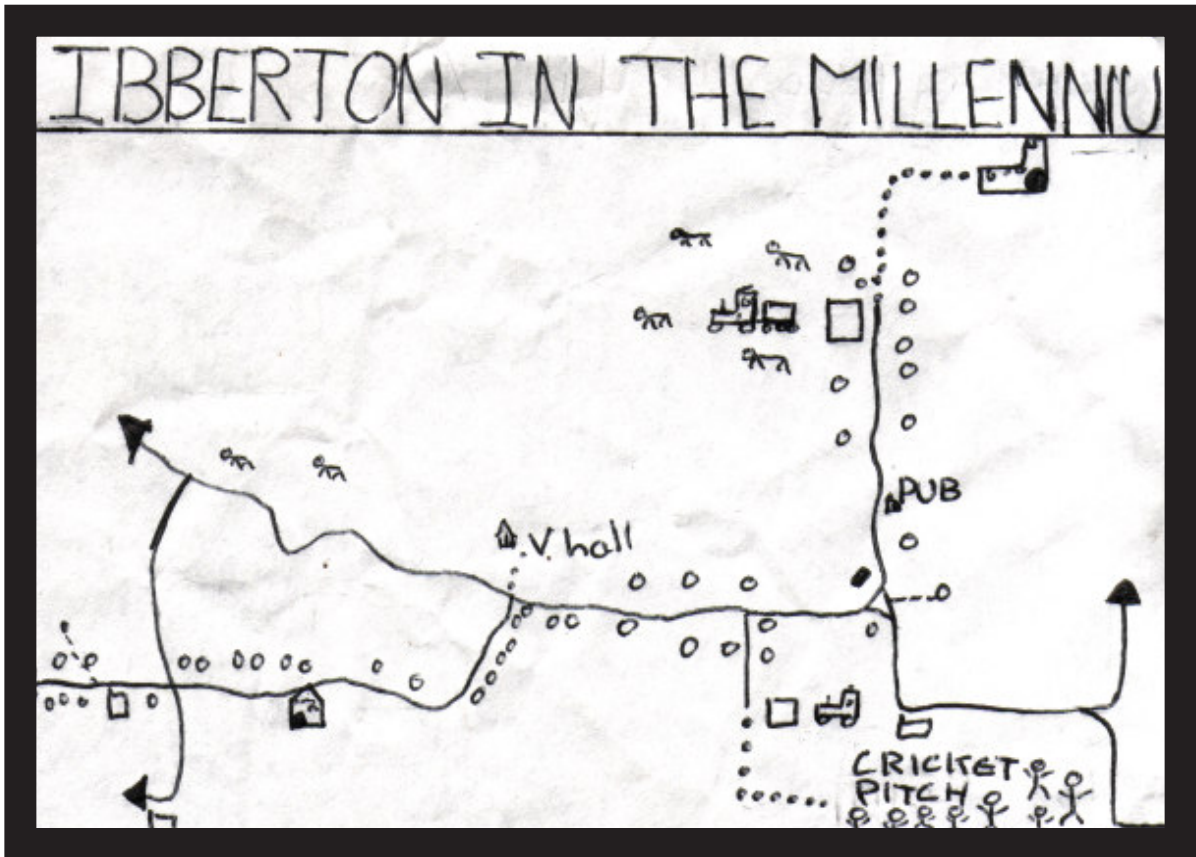 IBBERTON IN THE MILLENNIU
PUB
V. hall
CRICKET
PITCH